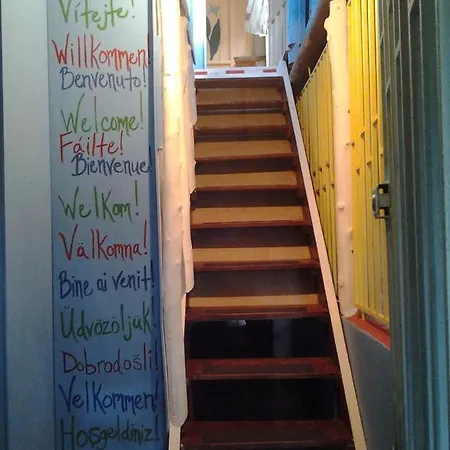 Vítejte!
Willkommen!
Benvenuto!
Welcome!
Fáilte!
Bienvenue!
Welkom!
Välkomna!
Bine ai venit!
Üdvözöljük!
Dobrodošli!
Velkommen!
Hoşgeldiniz!